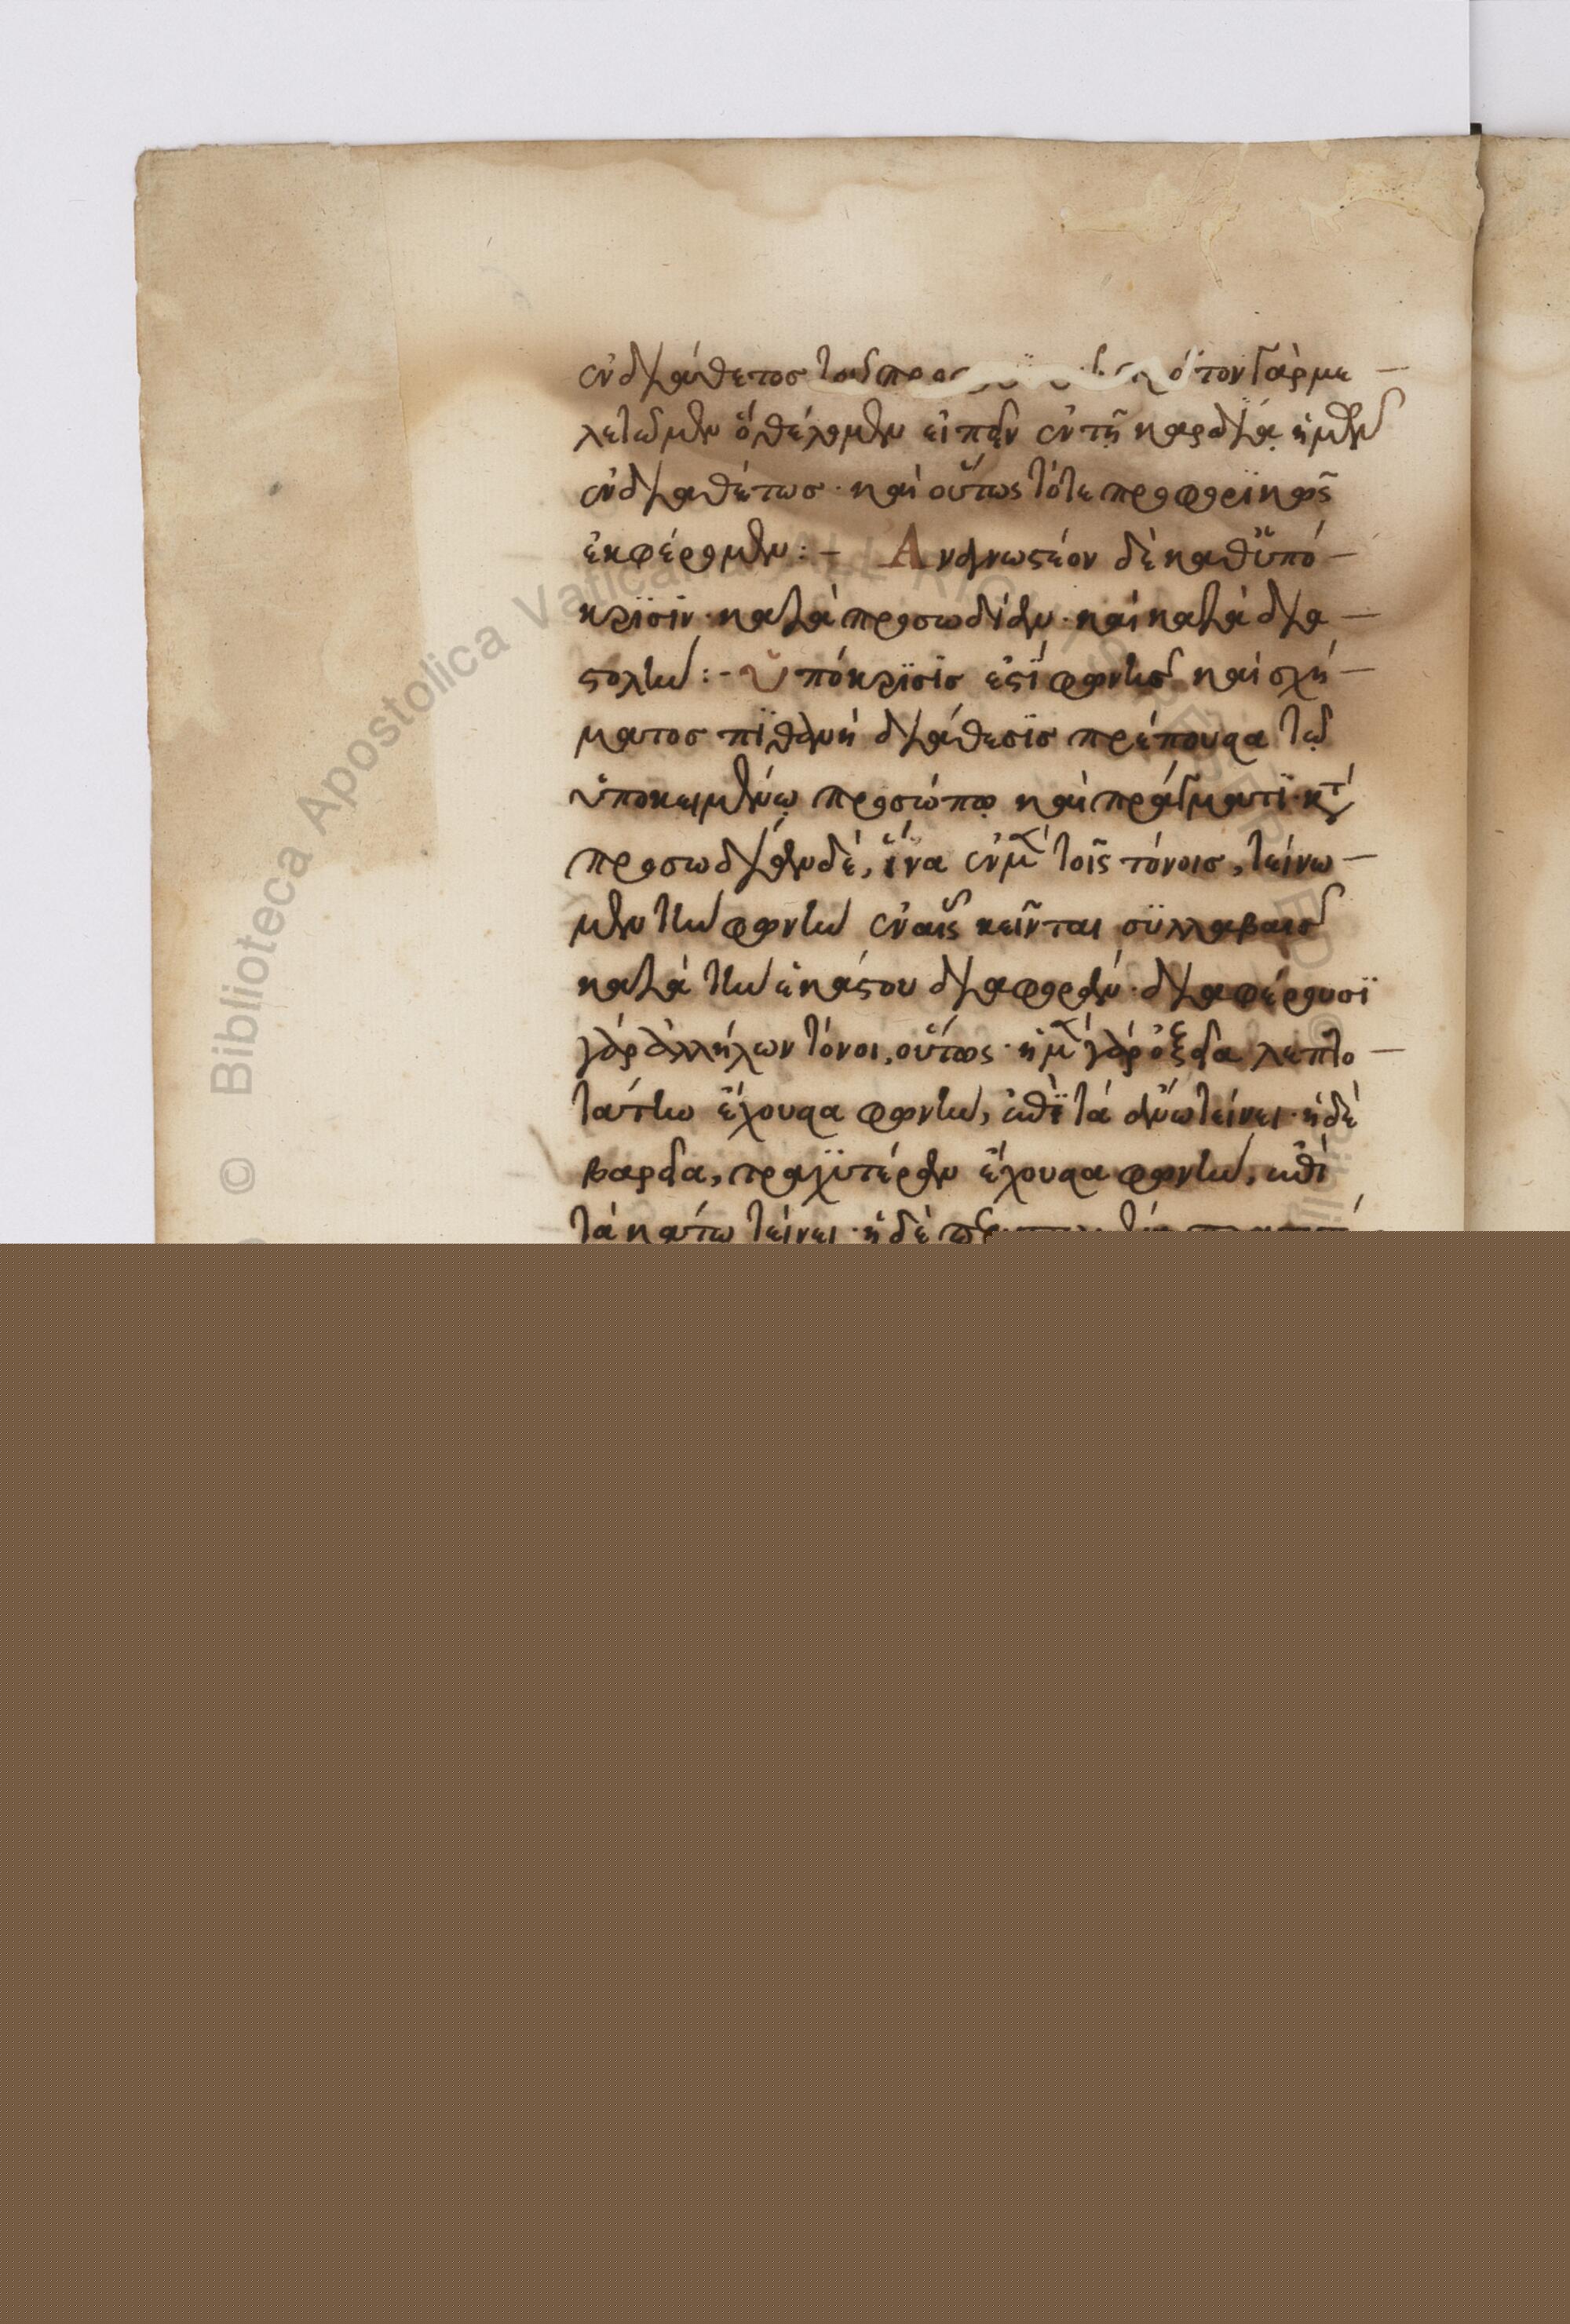 ἐνδιάθετος τοῦ προφ ὅταν γὰρ με
λετῶμεν ὃ θέλομεν εἰπεῖν ἐν τῇ καρδίᾳ ἡμῶν
ἐνδιαθέτως· καὶ οὕτως τότε προφορϊκῶς
ἐκφέρομεν:- Ἀναγνωστέον δὲ καθ' ὑπό
κρϊσϊν· κατὰ προσωδίαν· καὶ κατὰ δια
στολήν:- Ὑπόκρϊσϊς ἐστὶ φωνῆς καὶ σχή
ματος πϊθανὴ διάθεσϊς πρέπουσα τῷ
ὑποκειμένῳ προσώπῳ καὶ πράγματϊ· κατὰ
προσωδίαν δὲ, ἵνα ἐν μὲν τοῖς τόνοις, τείνω
μεν τὴν φωνὴν ἐν αἷς κεῖνται σϋλλαβαῖς
κατὰ τὴν ἑκάστου διαφοράν· διαφέρουσϊ
γὰρ ἀλλήλων τόνοι, οὕτως· ἡ μὲν γὰρ ὀξεῖα λεπτο
τάτην ἔχουσα φωνὴν, ἐπὶ τὰ ἄνω τείνει· ἡ δὲ
βαρεῖα, τραχϋτέραν ἔχουσα φωνὴν, ἐπὶ
τὰ κάτω τείνει· ἡ δὲ
© Biblioteca Apostolica Vaticana